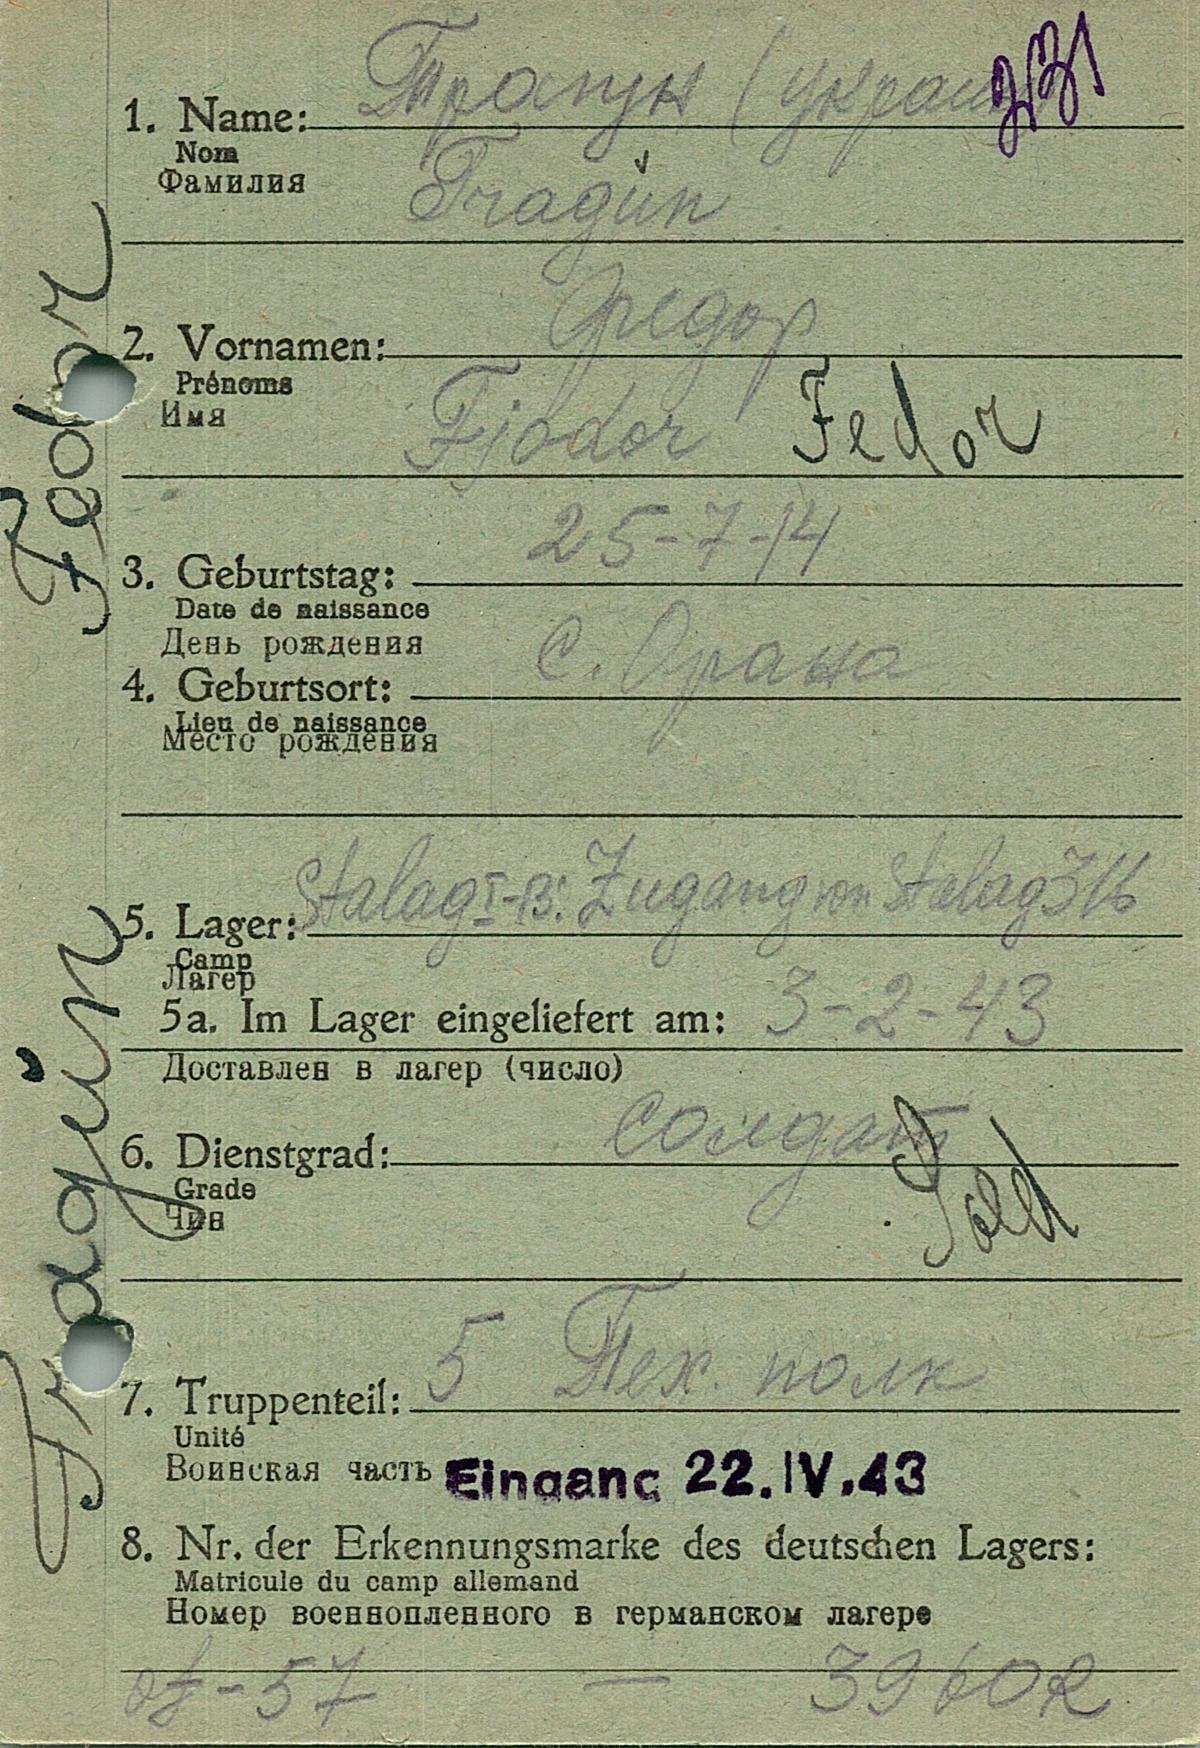 231
1. Name: Трагун (украин
Nom
Фамилия
Tragun
2. Vornamen: Федор
Prénoms
Имя
Fjodor Fedor
25-7-14
3. Geburtstag:
Date de naissance
День рождения
4. Geburtsort: с.
Lieu de naissance
Место рождения
5. Lager: Stalag I-B. Zugang von Stalag 316
Camp
Лагер
5a. Im Lager eingeliefert am: 3-2-43
Доставлен в лагер (число)
6. Dienstgrad: солдат
Grade
Чин
Sold
7. Truppenteil: 5 Тех. полк
Unité
Воинская часть
Eingang 22.IV.43
8. Nr. der Erkennungsmarke des deutschen Lagers:
Matricule du camp allemand
Номер военнопленного в германском лагере
57 — 39602
Tragun Fedor